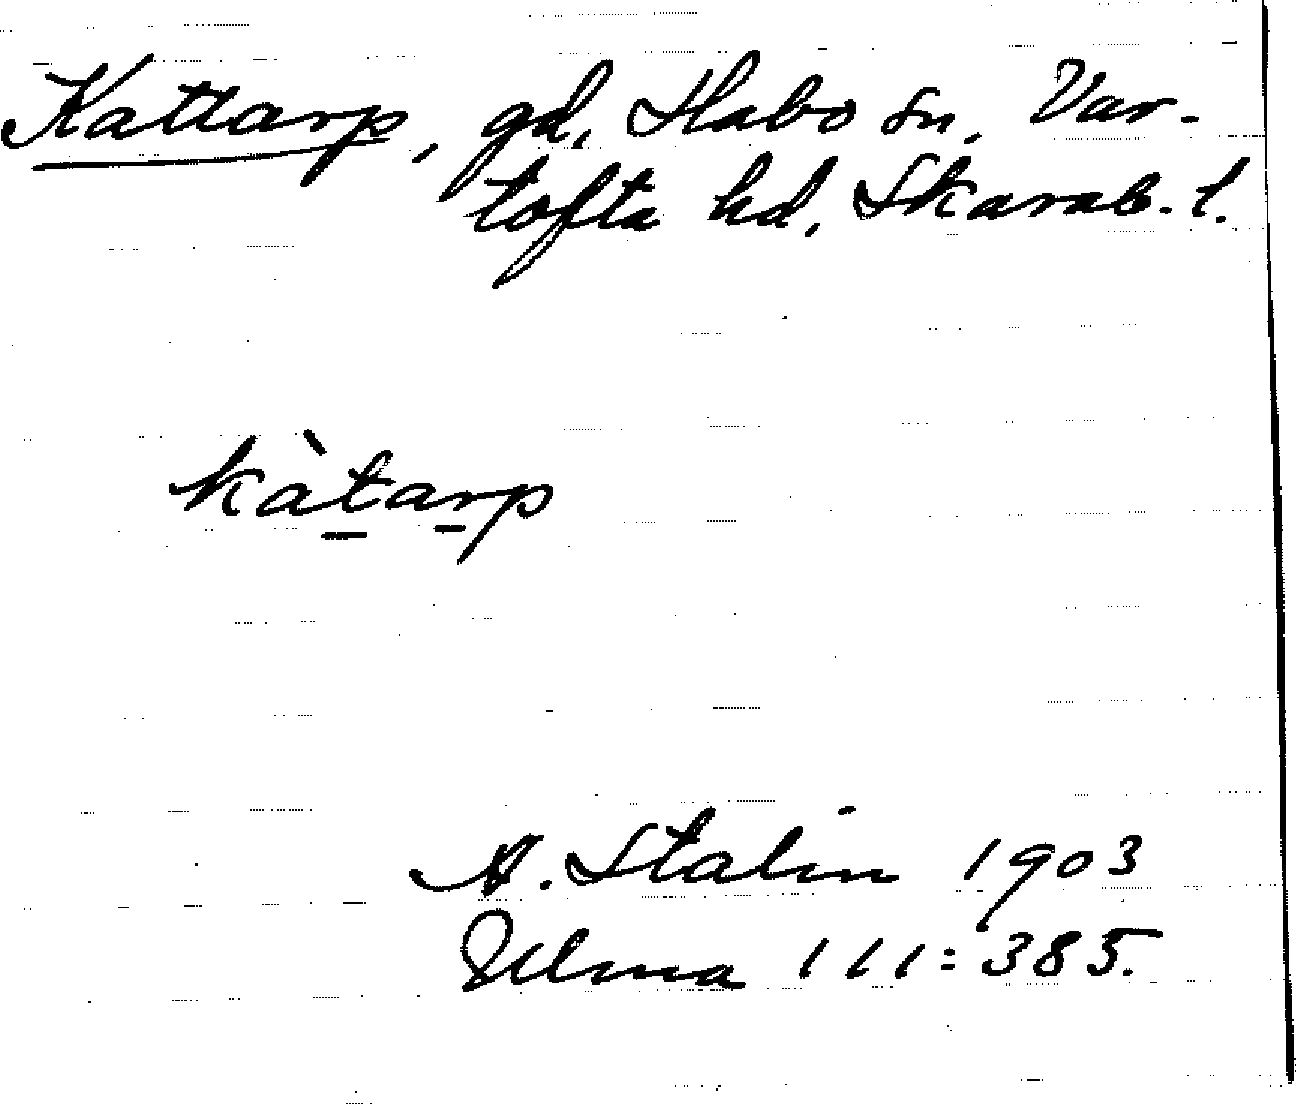 Kattarp, gd, Habo sn, Var-
tofta hd, Skarab. l.
kàtarp
A. Stalin 1903
Ulma 111:385.